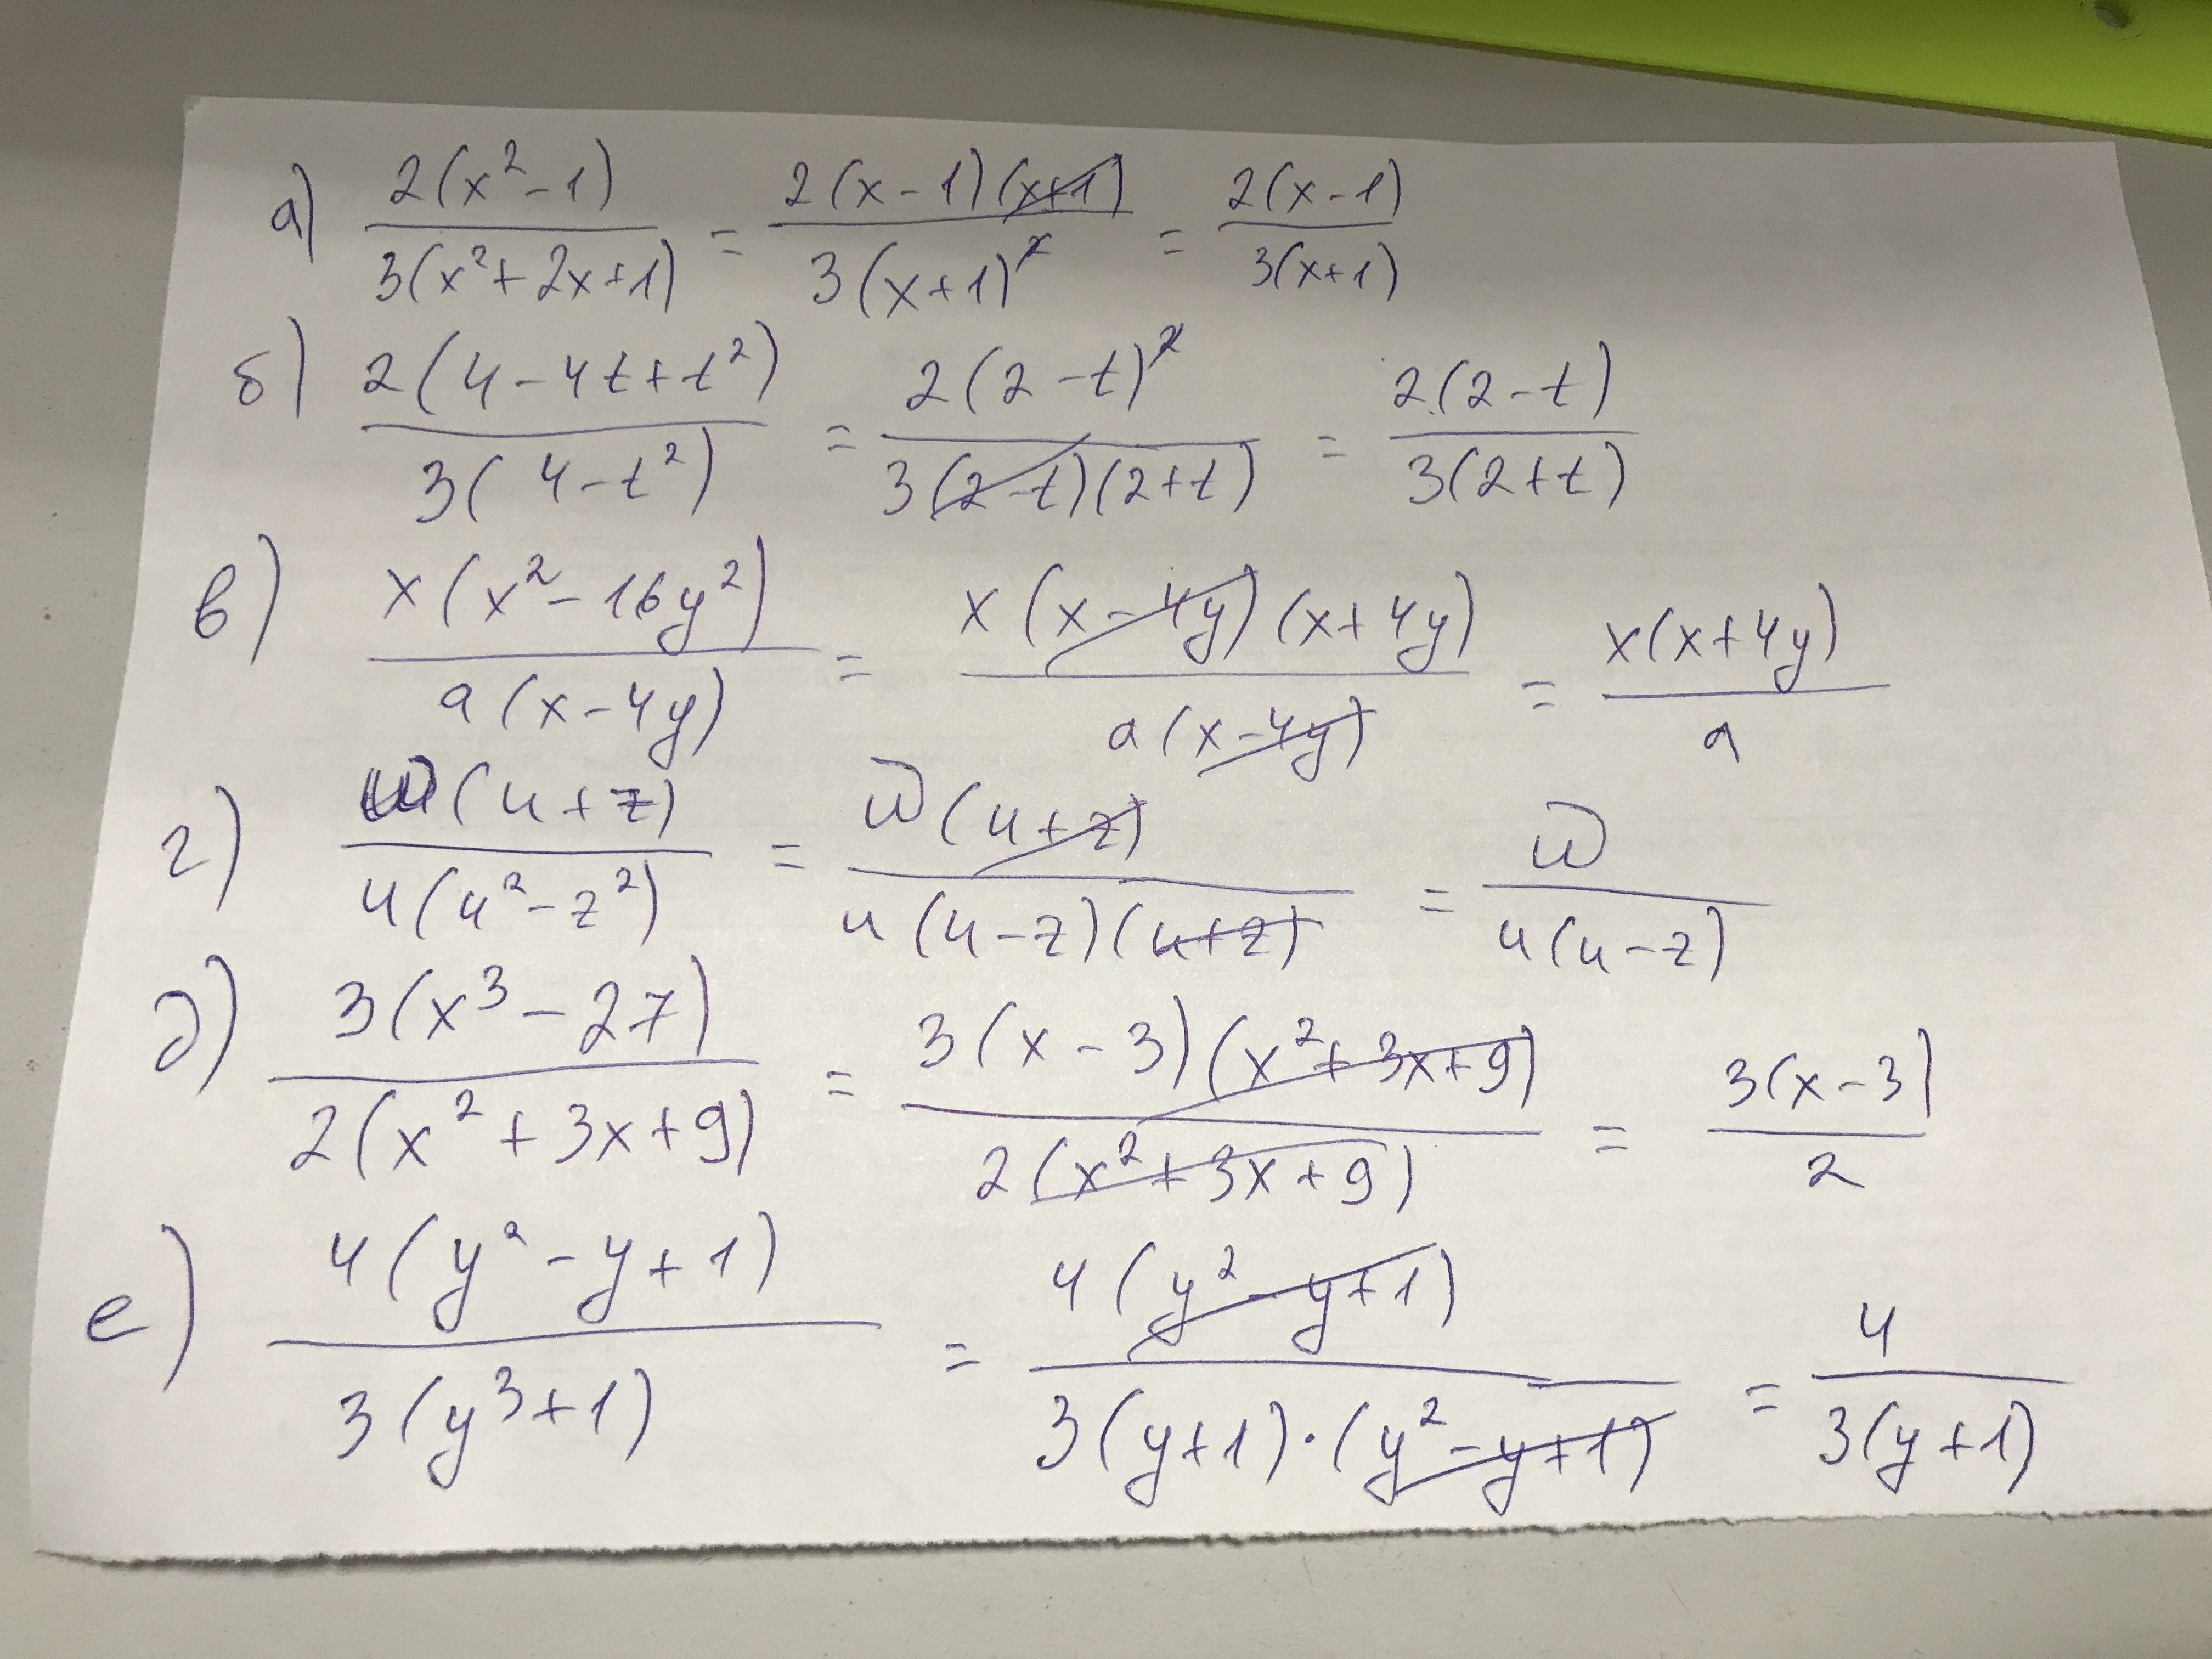 а) 2(x²-1) / 3(x²+2x+1) = 2(x-1)(x+1) / 3(x+1)² = 2(x-1) / 3(x+1)
б) 2(4-4t+t²) / 3(4-t²) = 2(2-t)² / 3(2-t)(2+t) = 2(2-t) / 3(2+t)
в) x(x²-16y²) / a(x-4y) = x(x-4y)(x+4y) / a(x-4y) = x(x+4y) / a
г) w(u+z) / u(u²-z²) = w(u+z) / u(u-z)(u+z) = w / u(u-z)
д) 3(x³-27) / 2(x²+3x+9) = 3(x-3)(x²+3x+9) / 2(x²+3x+9) = 3(x-3) / 2
е) 4(y²-y+1) / 3(y³+1) = 4(y²-y+1) / 3(y+1)·(y²-y+1) = 4 / 3(y+1)